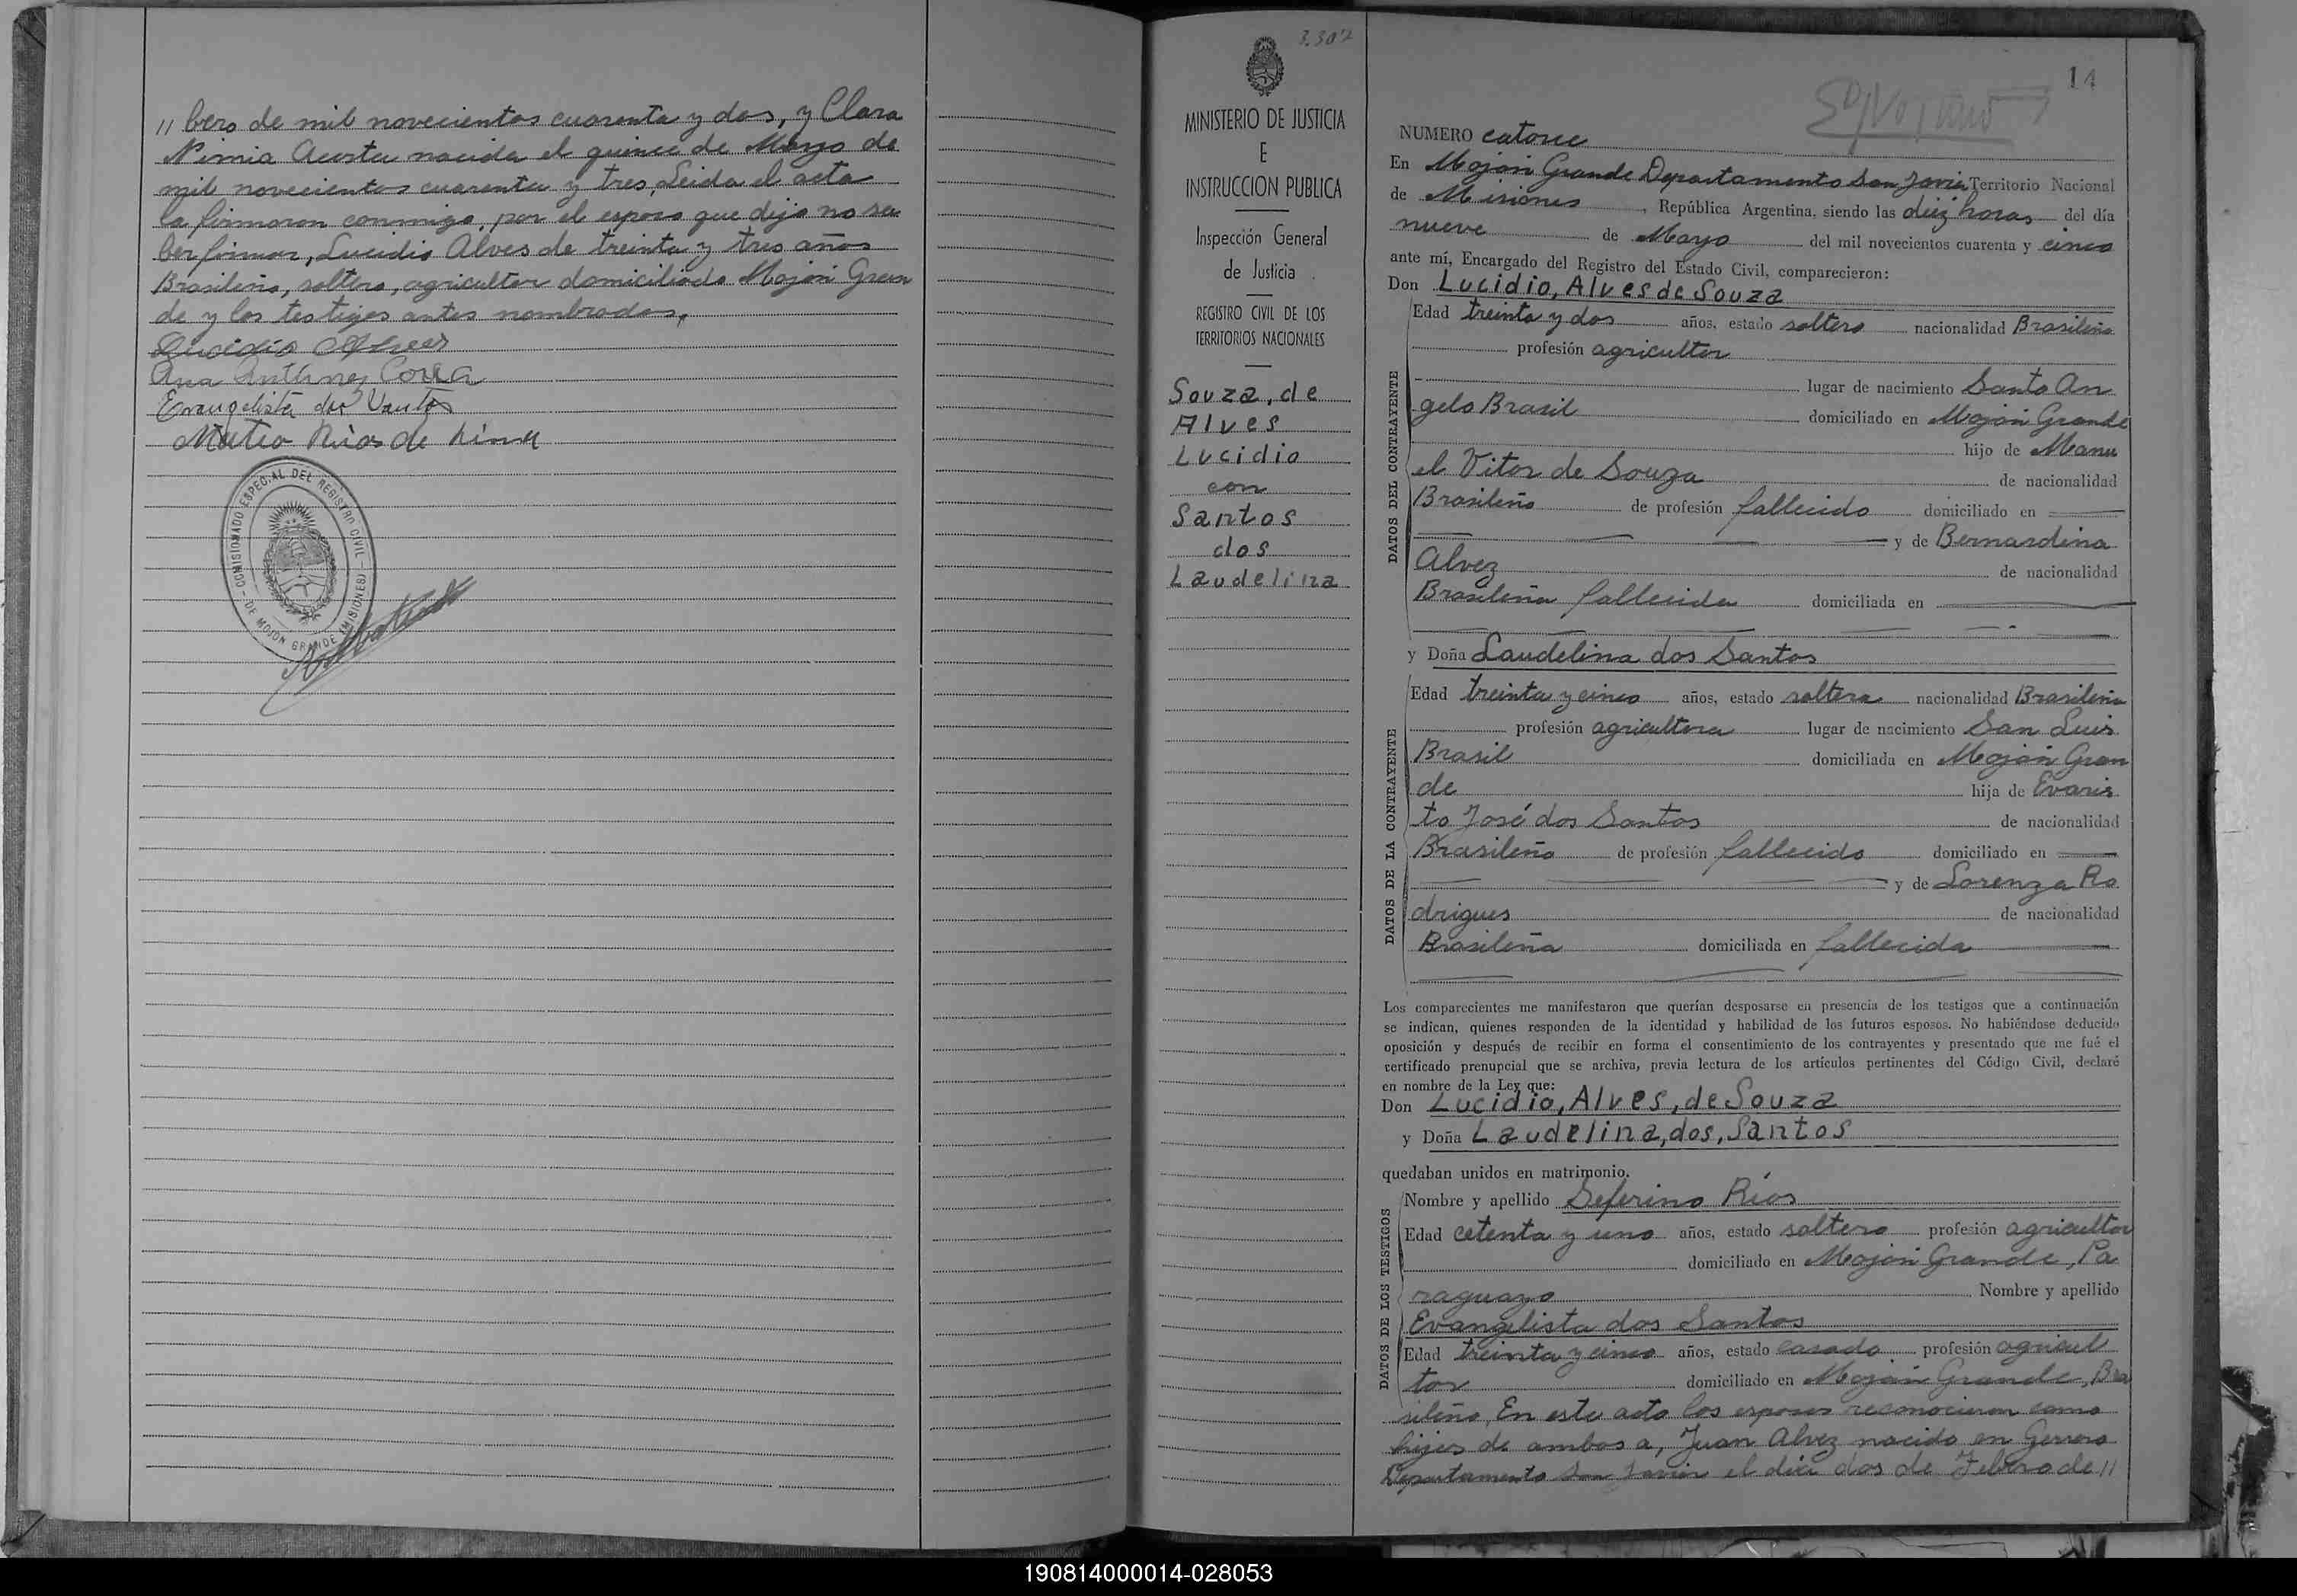 // bero de mil novecientos cuarenta y dos, y Clara
Nimia Acosta nacida el quince de Marzo de
mil novecientos cuarenta y tres, Leida el acta
la firmaron conmigo, por el esposo que dijo no sa
ber firmar, Lucidio Alves de treinta y tres años
Brasileño, soltero, agricultor domiciliado Mojón Gran
de y los testigos antes nombrados,
Lucidio Alves
Ana Antunez Correa
Evangelista dos Santos
Mateo Rios de Lima
COMISIONADO ESPECIAL DEL REGISTRO CIVIL
DE MOJON GRANDE (MISIONES)
3.307
MINISTERIO DE JUSTICIA
E
INSTRUCCION PUBLICA
Inspección General
de Justicia
REGISTRO CIVIL DE LOS
TERRITORIOS NACIONALES
Souza, de
Alves
Lucidio
con
Santos
dos
Laudelina
14
NUMERO catorce
En Mojón Grande Departamento San Javier Territorio Nacional
de Misiones, República Argentina, siendo las diez horas del día
nueve de Mayo del mil novecientos cuarenta y cinco
ante mí, Encargado del Registro del Estado Civil, comparecieron:
Don Lucidio, Alves de Souza
DATOS DEL CONTRAYENTE
Edad treinta y dos años, estado soltero nacionalidad Brasileño
profesión agricultor
lugar de nacimiento Santo An
gelo Brasil domiciliado en Mojón Grande
hijo de Manu
el Vitor de Souza de nacionalidad
Brasileño de profesión fallecido domiciliado en
y de Bernardina
Alvez de nacionalidad
Brasileña fallecida domiciliada en
y Doña Laudelina dos Santos
DATOS DE LA CONTRAYENTE
Edad treinta y cinco años, estado soltera nacionalidad Brasileña
profesión agricultora lugar de nacimiento San Luis
Brasil domiciliada en Mojón Gran
de hija de Evaris
to José dos Santos de nacionalidad
Brasileño de profesión fallecido domiciliado en
y de Lorenza Ro
drigues de nacionalidad
Brasileña domiciliada en fallecida
Los comparecientes me manifestaron que querían desposarse en presencia de los testigos que a continuación
se indican, quienes responden de la identidad y habilidad de los futuros esposos. No habiéndose deducido
oposición y después de recibir en forma el consentimiento de los contrayentes y presentado que me fué el
certificado prenupcial que se archiva, previa lectura de los artículos pertinentes del Código Civil, declaré
en nombre de la Ley que:
Don Lucidio, Alves, de Souza
y Doña Laudelina, dos, Santos
quedaban unidos en matrimonio.
DATOS DE LOS TESTIGOS
Nombre y apellido Seferino Ríos
Edad cetenta y uno años, estado soltero profesión agricultor
domiciliado en Mojón Grande, Pa
raguayo Nombre y apellido
Evangelista dos Santos
Edad treinta y cinco años, estado casado profesión agricul
tor domiciliado en Mojón Grande, Bra
sileño, En este acto los esposos reconocieron como
hijos de ambos a, Juan Alvez nacido en Gerrero
Departamento San Javier el día dos de Febrero de //
190814000014-028053